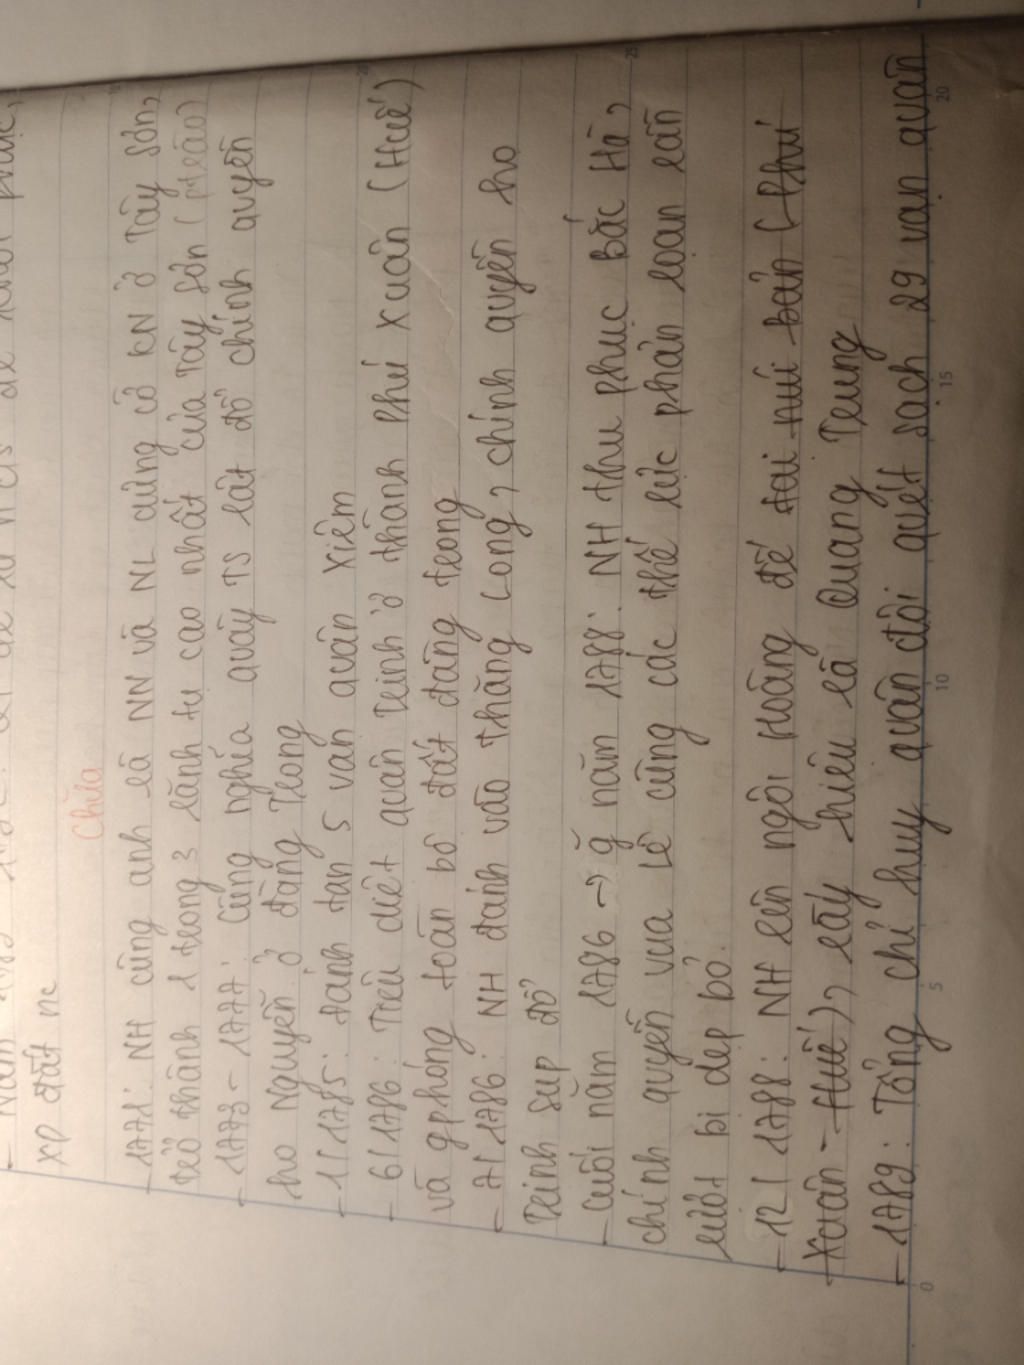 xp đất nc
Chữa
- 1771: NH cùng anh là NN và NL dựng cờ KN ở Tây Sơn,
trở thành 1 trong 3 lãnh tụ cao nhất của Tây Sơn (
- 1773 - 1777: Cùng nghĩa quây TS lật đổ chính quyền
họ Nguyễn ở đàng Trong
- 1/1785: đánh tan 5 vạn quân Xiêm
- 6/1786: Tiêu diệt quân Trịnh ở thành Phú Xuân (Huế)
và gphóng toàn bộ đất đàng trong
- 7/1786: NH đánh vào Thăng Long, chính quyền họ
Trịnh sụp đổ
- Cuối năm 1786 → g năm 1788: NH thu phục Bắc Hà,
chính quyền vua Lê cùng các thế lực phản loạn lần
lượt bị dẹp bỏ.
- 12/1788: NH lên ngôi Hoàng đế tại núi bản (Phú
Xuân - Huế), lấy hiệu là Quang Trung
- 1789: Tổng chỉ huy quân đội quét sạch 29 vạn quân
0 5 10 15 20